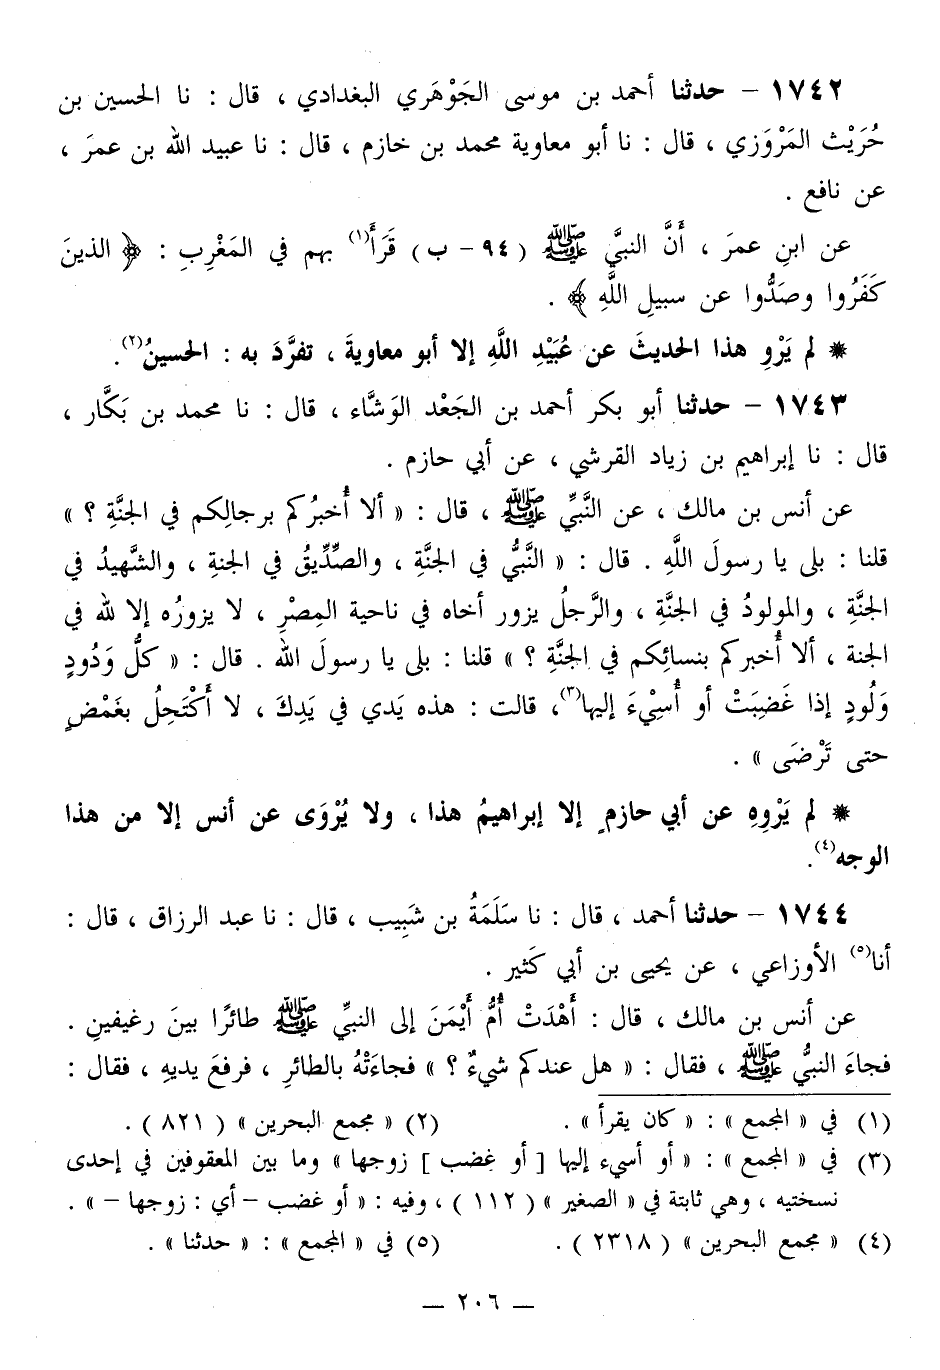 ١٧٤٢ - حدثنا أحمد بن موسى الجَوْهَري البغدادي ، قال : نا الحسين بن
حُرَيْث المَرْوَزي ، قال : نا أبو معاوية محمد بن خازم ، قال : نا عبيد الله بن عمرَ ،
عن نافع .
عن ابنِ عمرَ ، أَنَّ النبيَّ ﷺ ( ٩٤ - ب ) قَرَأَ(١) بهم في المَغْرِبِ : ﴿ الذينَ
كَفَرُوا وصَدُّوا عن سبيلِ اللَّهِ ﴾ .
* لم يَرْوِ هذا الحديثَ عن عُبَيْدِ اللَّهِ إلا أبو معاويةَ ، تفرَّدَ به : الحسينُ(٢).
١٧٤٣ - حدثنا أبو بكر أحمد بن الجَعْد الوَشَّاء ، قال : نا محمد بن بَكَّار ،
قال : نا إبراهيم بن زياد القرشي ، عن أبي حازم .
عن أنس بن مالك ، عن النَّبيِّ ﷺ ، قال : « ألا أُخبرُكم برجالِكم في الجنَّةِ ؟ »
قلنا : بلى يا رسولَ اللَّهِ . قال : « النَّبيُّ في الجنَّةِ ، والصِّدِّيقُ في الجنةِ ، والشَّهيدُ في
الجنَّةِ ، والمولودُ في الجنَّةِ ، والرَّجلُ يزور أخاه في ناحية المِصْرِ ، لا يزورُه إلا لله في
الجنة ، ألا أُخبركم بنسائِكم في الجنَّةِ ؟ » قلنا : بلى يا رسولَ الله . قال : « كلُّ وَدُودٍ
وَلُودٍ إذا غَضِبَتْ أو أُسِيْءَ إليها(٣)، قالت : هذه يَدي في يَدِكَ ، لا أَكْتَحِلُ بغَمْضٍ
حتى تَرْضَى » .
* لم يَرْوِهِ عن أبي حازمٍ إلا إبراهيمُ هذا ، ولا يُرْوَى عن أنس إلا من هذا
الوجه(٤).
١٧٤٤ - حدثنا أحمد ، قال : نا سَلَمَةُ بن شَبِيب ، قال : نا عبد الرزاق ، قال :
أنا(٥) الأوزاعي ، عن يحيى بن أبي كَثير .
عن أنس بن مالك ، قال : أَهْدَتْ أُمُّ أَيْمَنَ إلى النبيِّ ﷺ طائرًا بينَ رغيفينِ .
فجاءَ النبيُّ ﷺ ، فقال : « هل عندكم شيءٌ ؟ » فجاءَتْهُ بالطائرِ ، فرفعَ يديهِ ، فقال :
(١) في « المجمع » : « كان يقرأ » . (٢) « مجمع البحرين » ( ٨٢١ ) .
(٣) في « المجمع » : « أو أسيء إليها [ أو غضب ] زوجها » وما بين المعقوفين في إحدى
نسختيه ، وهي ثابتة في « الصغير » ( ١١٢ ) ، وفيه : « أو غضب - أي : زوجها - » .
(٤) « مجمع البحرين » ( ٢٣١٨ ) . (٥) في « المجمع » : « حدثنا » .
— ٢٠٦ —